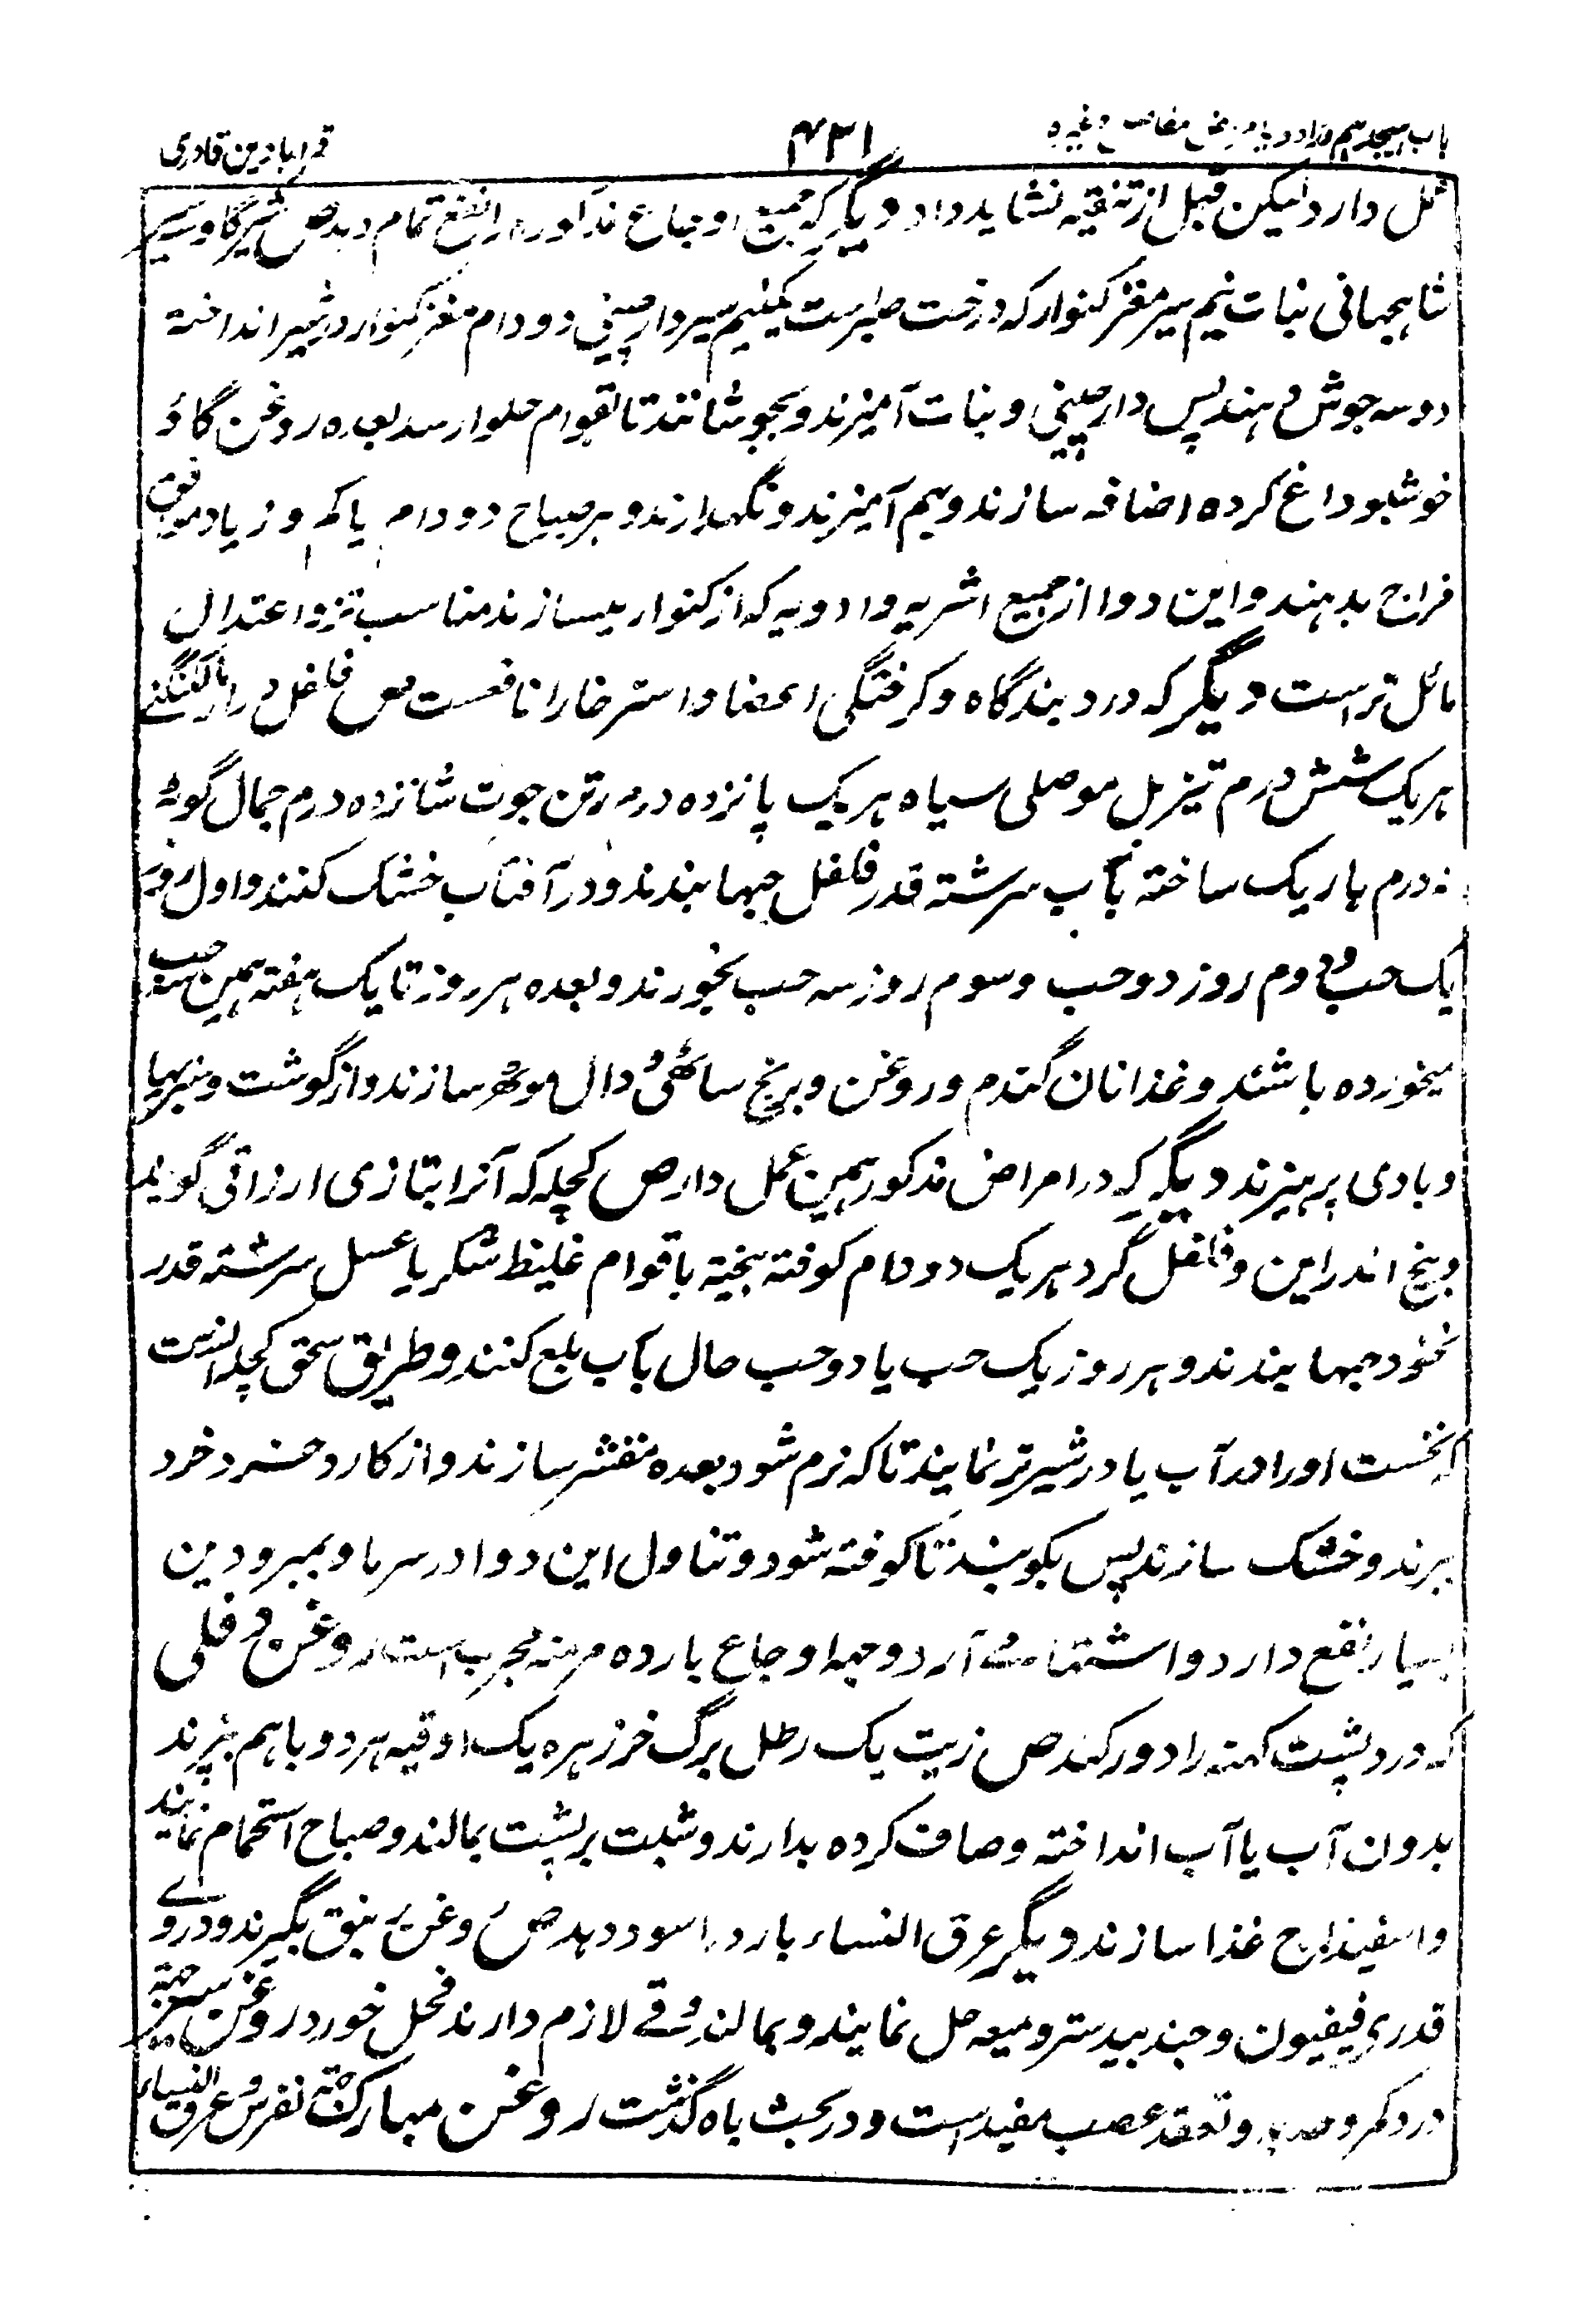 باب هیجدهم در ادویه امراض مفاصل وغیره ۴۳۱ قرابادین قادری
عمل دارد لیکن قبل از تنقیه نشاید داد دیگر که جمیع اوجاع مذکوره را نفع تمام دهد ص شیر گاو سه سیر
شاهجهانی نبات نیم سیر مغز کنوار که درخت صبرست یکنیم سیر دارچینی دو دام مغز کنوار در شیر انداخته
دو سه جوش دهند پس دارچینی و نبات آمیزند و بجوشانند تا بقوام حلوا رسد بعده روغن گاؤ
خوشبو داغ کرده اضافه سازند و بهم آمیزند و نگهدارند و هر صباح دو دام یا کم و زیاد موافق
مزاج بدهند و این دوا از جمیع اشربه و ادویه که از کنوار میسازند مناسب تر و اعتدال
مائل ترست دیگر که درد بندگاه و گرفتگی اعضا و استرخا را نافعست ص فلفل دراز
هر یک شش درم تیزبل موصلی سیاه هر یک پانزده درم رتن جوت شانزده درم جمال گوٹه
نه درم باریک ساخته بآب سرشته قدر فلفل حبها بندند و در آفتاب خشک کنند و اول روز
یک حب و دوم روز دو حب و سوم روز سه حب بخورند و بعده هر روز تا یک هفته همین سه حب
میخورده باشند و غذا نان گندم و روغن و برنج ساٹھی و دال موٹھ سازند و از گوشت و شیر بنها
و بادی پرهیزند دیگر که در امراض مذکور همین عمل دارد ص کچله که آنرا بتازی اراراقی گویند
و بیخ اندراین و فلفل گرد هر یک دو دام کوفته بیخته با قوام غلیظ شکر یا عسل سرشته قدر
نخود حبها بندند و هر روز یک حب یا دو حب حال بآب بلع کنند و طریق سحق کچله اینست
که نخست او را در آب یا در شیر تر نمایند تا که نرم شود بعده مقشر سازند و از کارد خرد خرد
ببرند و خشک سازند پس بکوبند تا کوفته شود و تناول این دوا در سرما و بمبرودین
بسیار نفع دارد و اشتها مے آرد و جهه اوجاع بارده مزمنه مجرب است روغن دفلی
که درد پشت کهنه را دور کند ص زیت یک رطل برگ خرزهره یک اوقیه هر دو باهم بپزند
بدون آب یا آب انداخته و صاف کرده بدارند و شبت بر پشت بمالند و صباح استحمام نمایند
و اسفیذاج غذا سازند دیگر عرق النساء بارد را سود دهد ص روغن زنبق بگیرند و در وے
قدری فرفیون و جندبیدستر و میعه حل نمایند و بمالند و قے لازم دارند فحل خورد روغن سیر جهة
درد کمر و و تعقد عصب مفید است و در بحث باه گذشت روغن مبارک جهة نقرس و عرق النساء